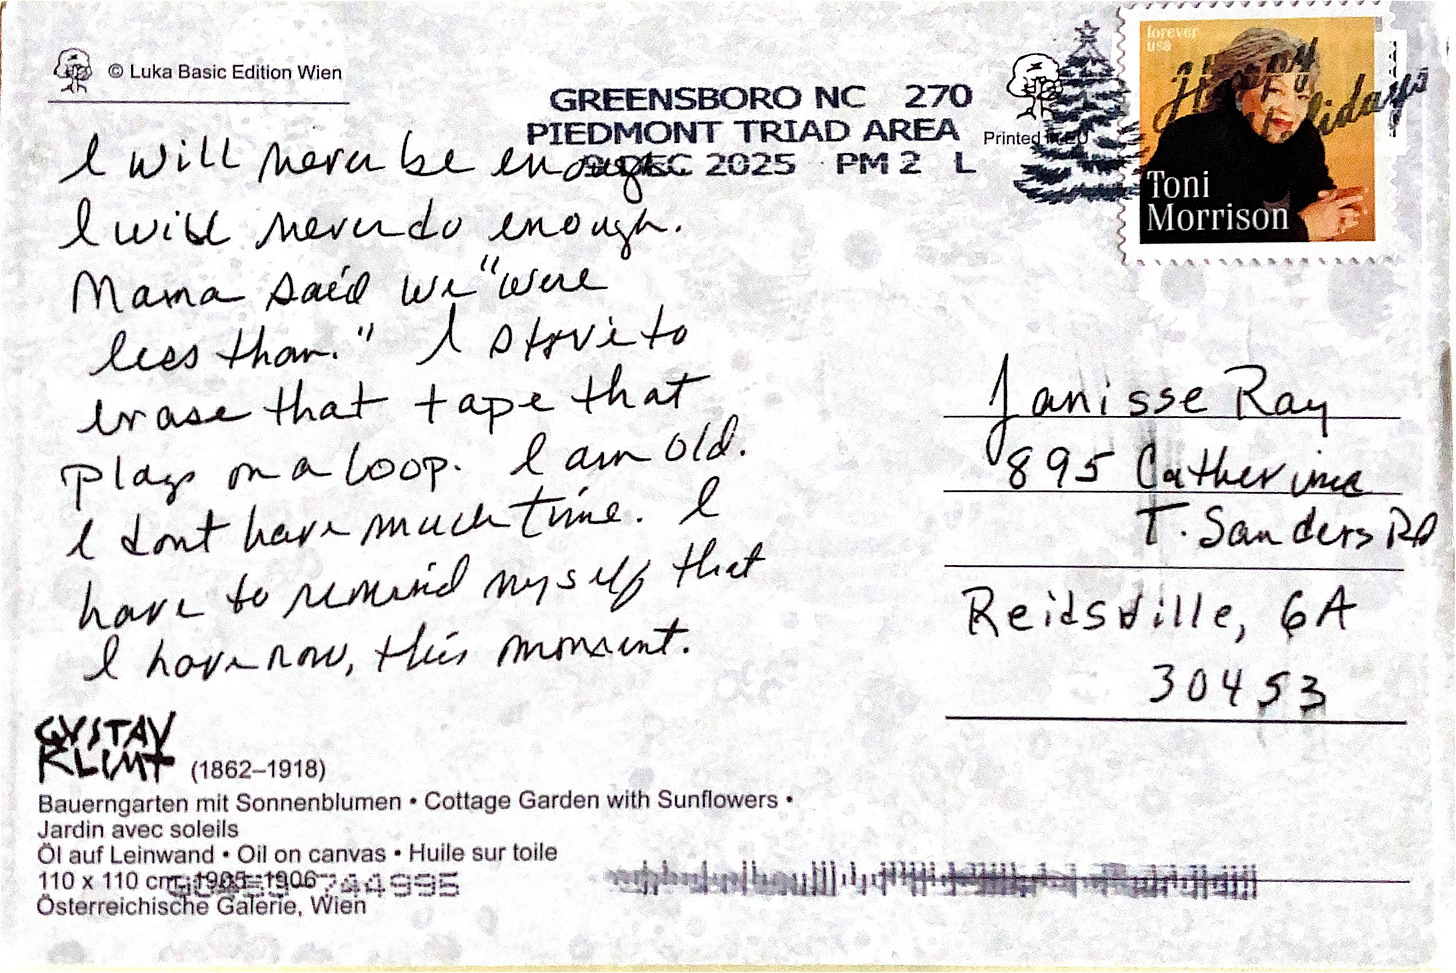 © Luka Basic Edition Wien
GREENSBORO NC 270
PIEDMONT TRIAD AREA
DEC 2025 PM 2 L
Printed in EU
forever
usa
Happy
Holidays
Toni
Morrison
I will never be enough.
I will never do enough.
Mama said we "were
less than." I strive to
erase that tape that
plays on a loop. I am old.
I dont have much time. I
have to remind myself that
I have now, this moment.
Janisse Ray
895 Catherine
T. Sanders RD
Reidsville, GA
30453
GUSTAV
KLIMT (1862–1918)
Bauerngarten mit Sonnenblumen • Cottage Garden with Sunflowers •
Jardin avec soleils
Öl auf Leinwand • Oil on canvas • Huile sur toile
110 x 110 cm, 1905–1906
Österreichische Galerie, Wien